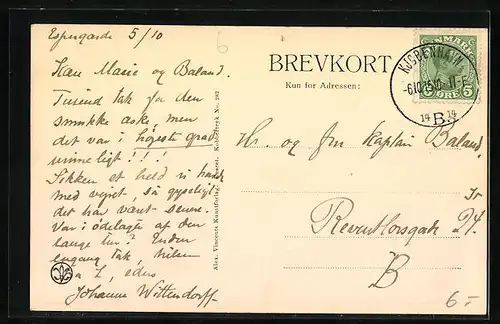 Espergærde 5/10
6
Kære Marie og Baland.
Tusind tak for den
smukke æske, men
det var i højeste grad
urimeligt!!!
Sikken et held vi havde
med vejret, så gyseligt
det har været senere.
Var i ødelagte af den
lange tur? Endnu
engang tak, hilsen
fra L, eders
Johanne Wittendorff
Alex. Vincents Kunstforlag, Eneret. No. 282
BREVKORT
Kun for Adressen:
DANMARK
5 ØRE 5
KJØBENHAVN
14 B. 14
Hr. og fru Kaptajn Baland.
Reventlowsgade 24.
B
6.-